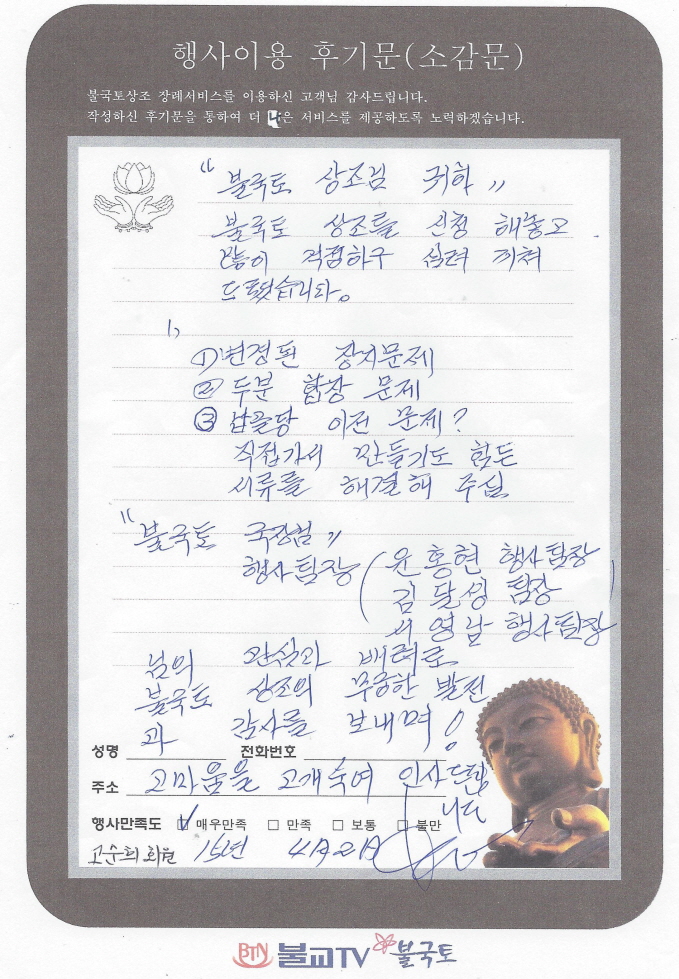 행사이용 후기문(소감문)
불국토상조 장례서비스를 이용하신 고객님 감사드립니다.
작성하신 후기문을 통하여 더 나은 서비스를 제공하도록 노력하겠습니다.
"불국토 상조님 귀하"
불국토 상조를 신청 해놓고
많이 걱정하구 심려 끼쳐
드렸습니다.
1,
① 변경된 장지문제
② 두분 합장 문제
③ 납골당 이전 문제?
직접가서 만들기도 힘든
서류를 해결해 주심
"불국토 국장님"
행사팀장 (윤홍현 행사팀장
김달성 팀장
서영남 행사팀장)
님의 관심과 배려로
불국토 상조의 무궁한 발전
과 감사를 보내며!
성명 전화번호
주소 고마움을 고개숙여 인사드립
니다
행사만족도 ☑ 매우만족 □ 만족 □ 보통 □ 불만
고순희 회원 15년 4월 2일
BTN 불교TV 불국토